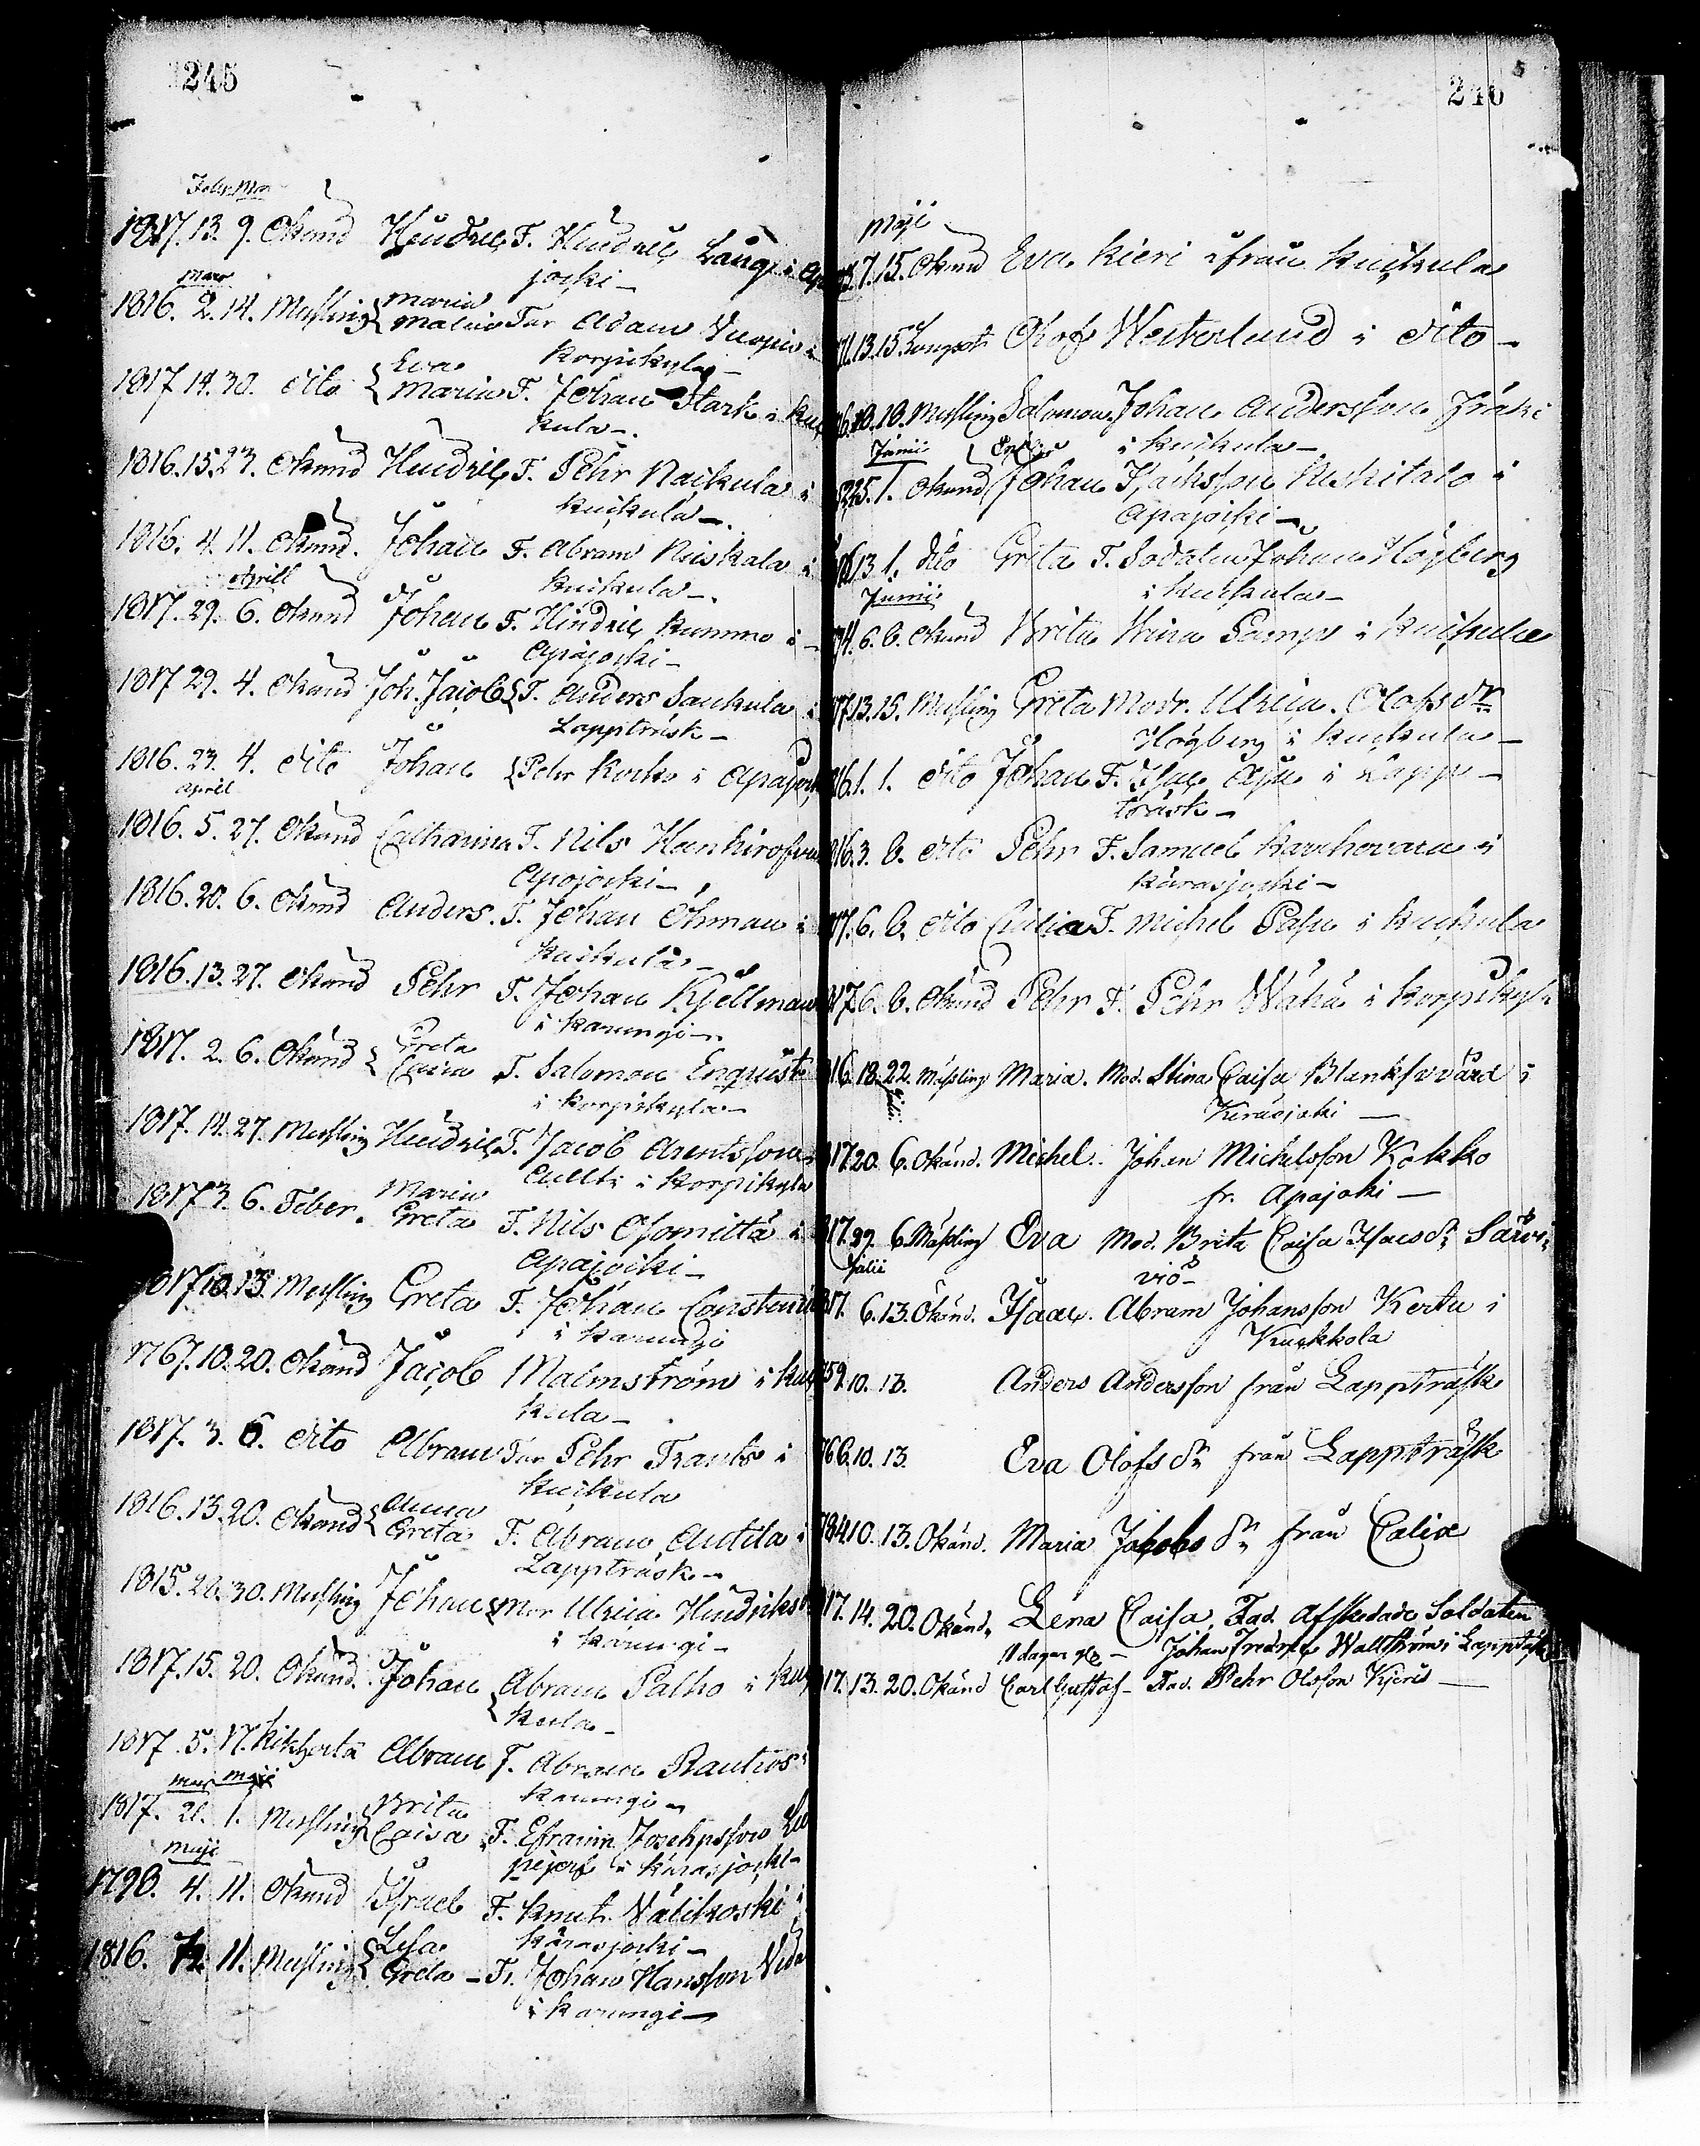 245
Febr. Mar
1817. 13. 9. Okänd Hendric F. Hindric Lång i Apa
jocki –
Mars
1816. 2. 14. Messling Maria
Malina Far Adam Vuopio i
Korpikyla –
Eva
1817 14. 30. dito Maria F. Johan Stark i Kuc
kula –.
1816. 15. 23. Okänd Hendric F. Pehr Naikula i
Kuckula –.
1816. 4. 11. Okänd. Johan F. Abram Niskala i
Kuckula –.
Aprill
1817. 29. 6. Okänd Johan F. Hindric Kummo i
Apajocki –
1817 29. 4. Okänd Joh. Jacob F. Anders Saukula i
Lappträsk –
1816. 23. 4. dito Johan Pehr Kocko i Apajock
Aprill
1816. 5. 27. Okänd Catharina F. Nils Hanhirofva
Apojocki –
1816. 20. 6. Okänd Anders. F. Johan Öhman i
Kuckula –
1816. 13. 27. Okänd Pehr F. Johan Kjellman
i Karungi –.
1817. 2. 6. Okänd Greta
Caisa F. Salomon Enquist
i Korpikyla –
1817. 14. 27. Messling Hendric F. Jacob Arentsson
i Korpikyla
1817 3. 6. Feber. Maria
Greta F. Nils Ojomittä i
Apajocki –
1817 10. 13. Messling Greta F. Johan Constenius
i Karungi
1767. 10. 20. Okänd Jacob Malmström i Kuc
kula –
1817. 3. 6. dito Abram Far Pehr Frants i
Kuckula
1816. 13. 20. Okänd Anna
Greta F. Abram Antila i
Lappträsk –
1815. 20. 30. Messling Johan Mor Ulrica Hendriks
i Karungi –
1817. 15. 20. Okänd. Johan Abram Palho i Kuc
kula –
1817. 5. 17. Kikhosta Abram F. Abram Rautios i
Karungi –
Mar Maji
1817. 21. 1. Messling Brita
Caisa F. Efraim Josephsson Lu
pejerf i Karasjocki –
Maji
1796. 4. 11. Okänd Israel F. Knut Välikoski i
Karasjocki –
1816. 11. Messling Lisa
Greta – F. Johan Hansson
i Karungi –
246
Maji
7. 15. Okänd Eva Kieri ifrån Kuckula
13. 15. Olof Westerlund i dito –
10. 10. Messling Salomon Johan Andersson Fräki
i Kuckula –
Junii
25. 1. Okänd Johan Isacksson Niskitalo i
Apajocki –
13 1. dito Greta F. Sodaten Johan Högberg
i Kuckula –
Junii
94. 6. 6. Okänd Brita Stina Pamp i Kuckula
17. 13. 15. Messling Greta Modr. Ulrica. Olofsdr
Högberg i Kuckula –
16. 1. 1. dito Johan F. Isac i Lapp–
träsk –
816. 3. 6. dito Pehr F. Samuel Karhovara i
Karasjocki –
17. 6. 6. dito Cicilia F. Michel Pasu i Kuckula
17. 6. 6. Okänd Pehr F. Pehr Wähä i Korpikyla
16. 18. 22. Mässling Maria. Mod. Stina Caisa Blanksvärd i
Kerasjoki –
Julii
1720. 6. Okänd. Michel. Johan Michelsson Kokko
fr. Apajoki –
17. 29. 6. Mässling Eva Mod. Brita Caisa Isacsdr Särki
viö –
Julii
817. 6. 13. Okänd. Isaac. Abram Johansson Kertu i
Kuckkola
759. 10. 13. Anders Andersson från Lappträsk
766. 10. 13. Eva Olofsdr från Lappträsk
784 10. 13. Okänd. Maria Jakobsdr från Calix
17. 14. 20. Okänd. Lena Caisa. Fad. Afskedade Soldaten
11 dagar gl – Johan Fredric Wallström i Lappträsk
17. 13. 20. Okänd Carl Gustaf – Fad. Pehr Olsson Kjeri –